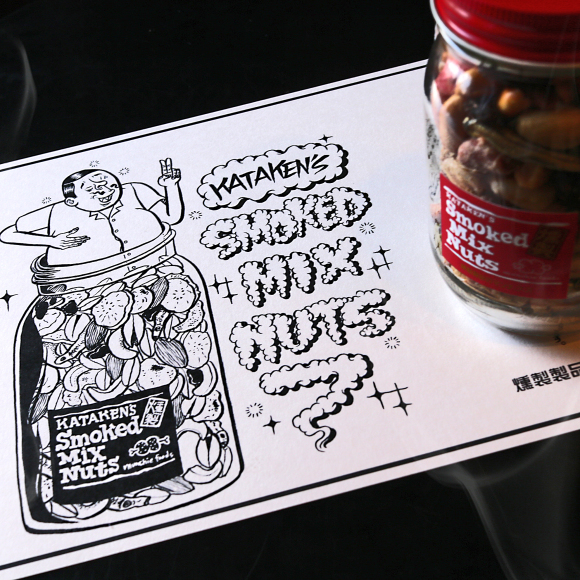 KATAKEN'S
SMOKED
MIX
NUTS
KATAKEN'S
燻製
Smoked
Mix
Nuts
ramchie foods
KATAKEN'S
Smoked
Mix
Nuts
燻製製品